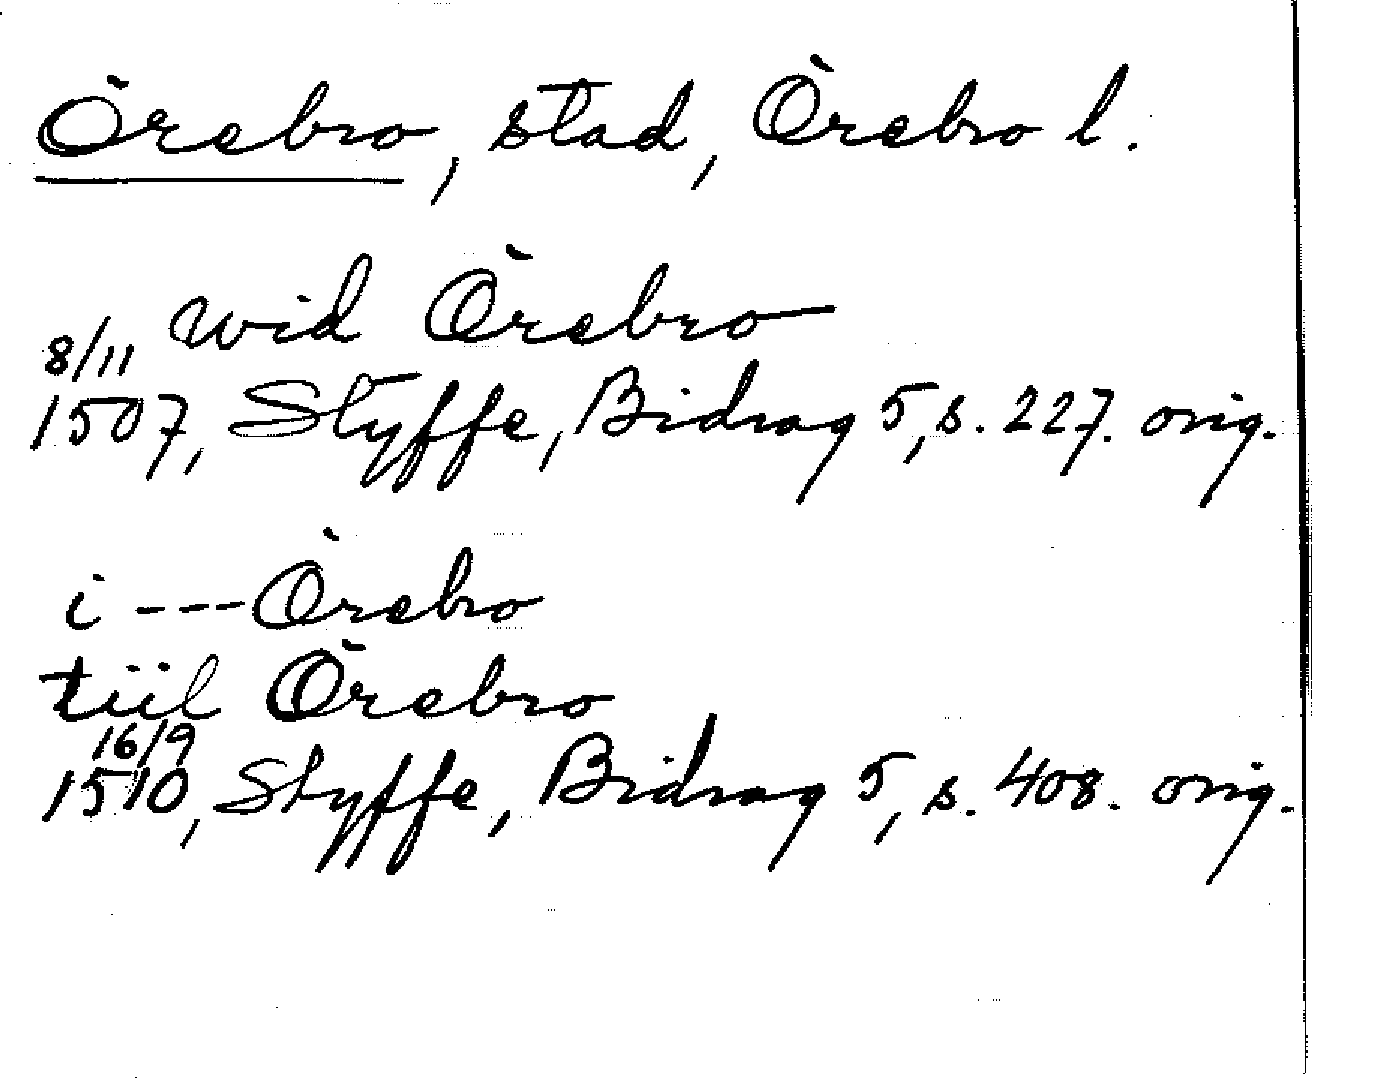 Örebro, stad, Örebro l.
wid Örebro
8/11
1507, Styffe, Bidrag 5, s. 227. orig.
i --- Örebro
tiil Örebro
16/9
1510, Styffe, Bidrag 5, s. 408. orig.